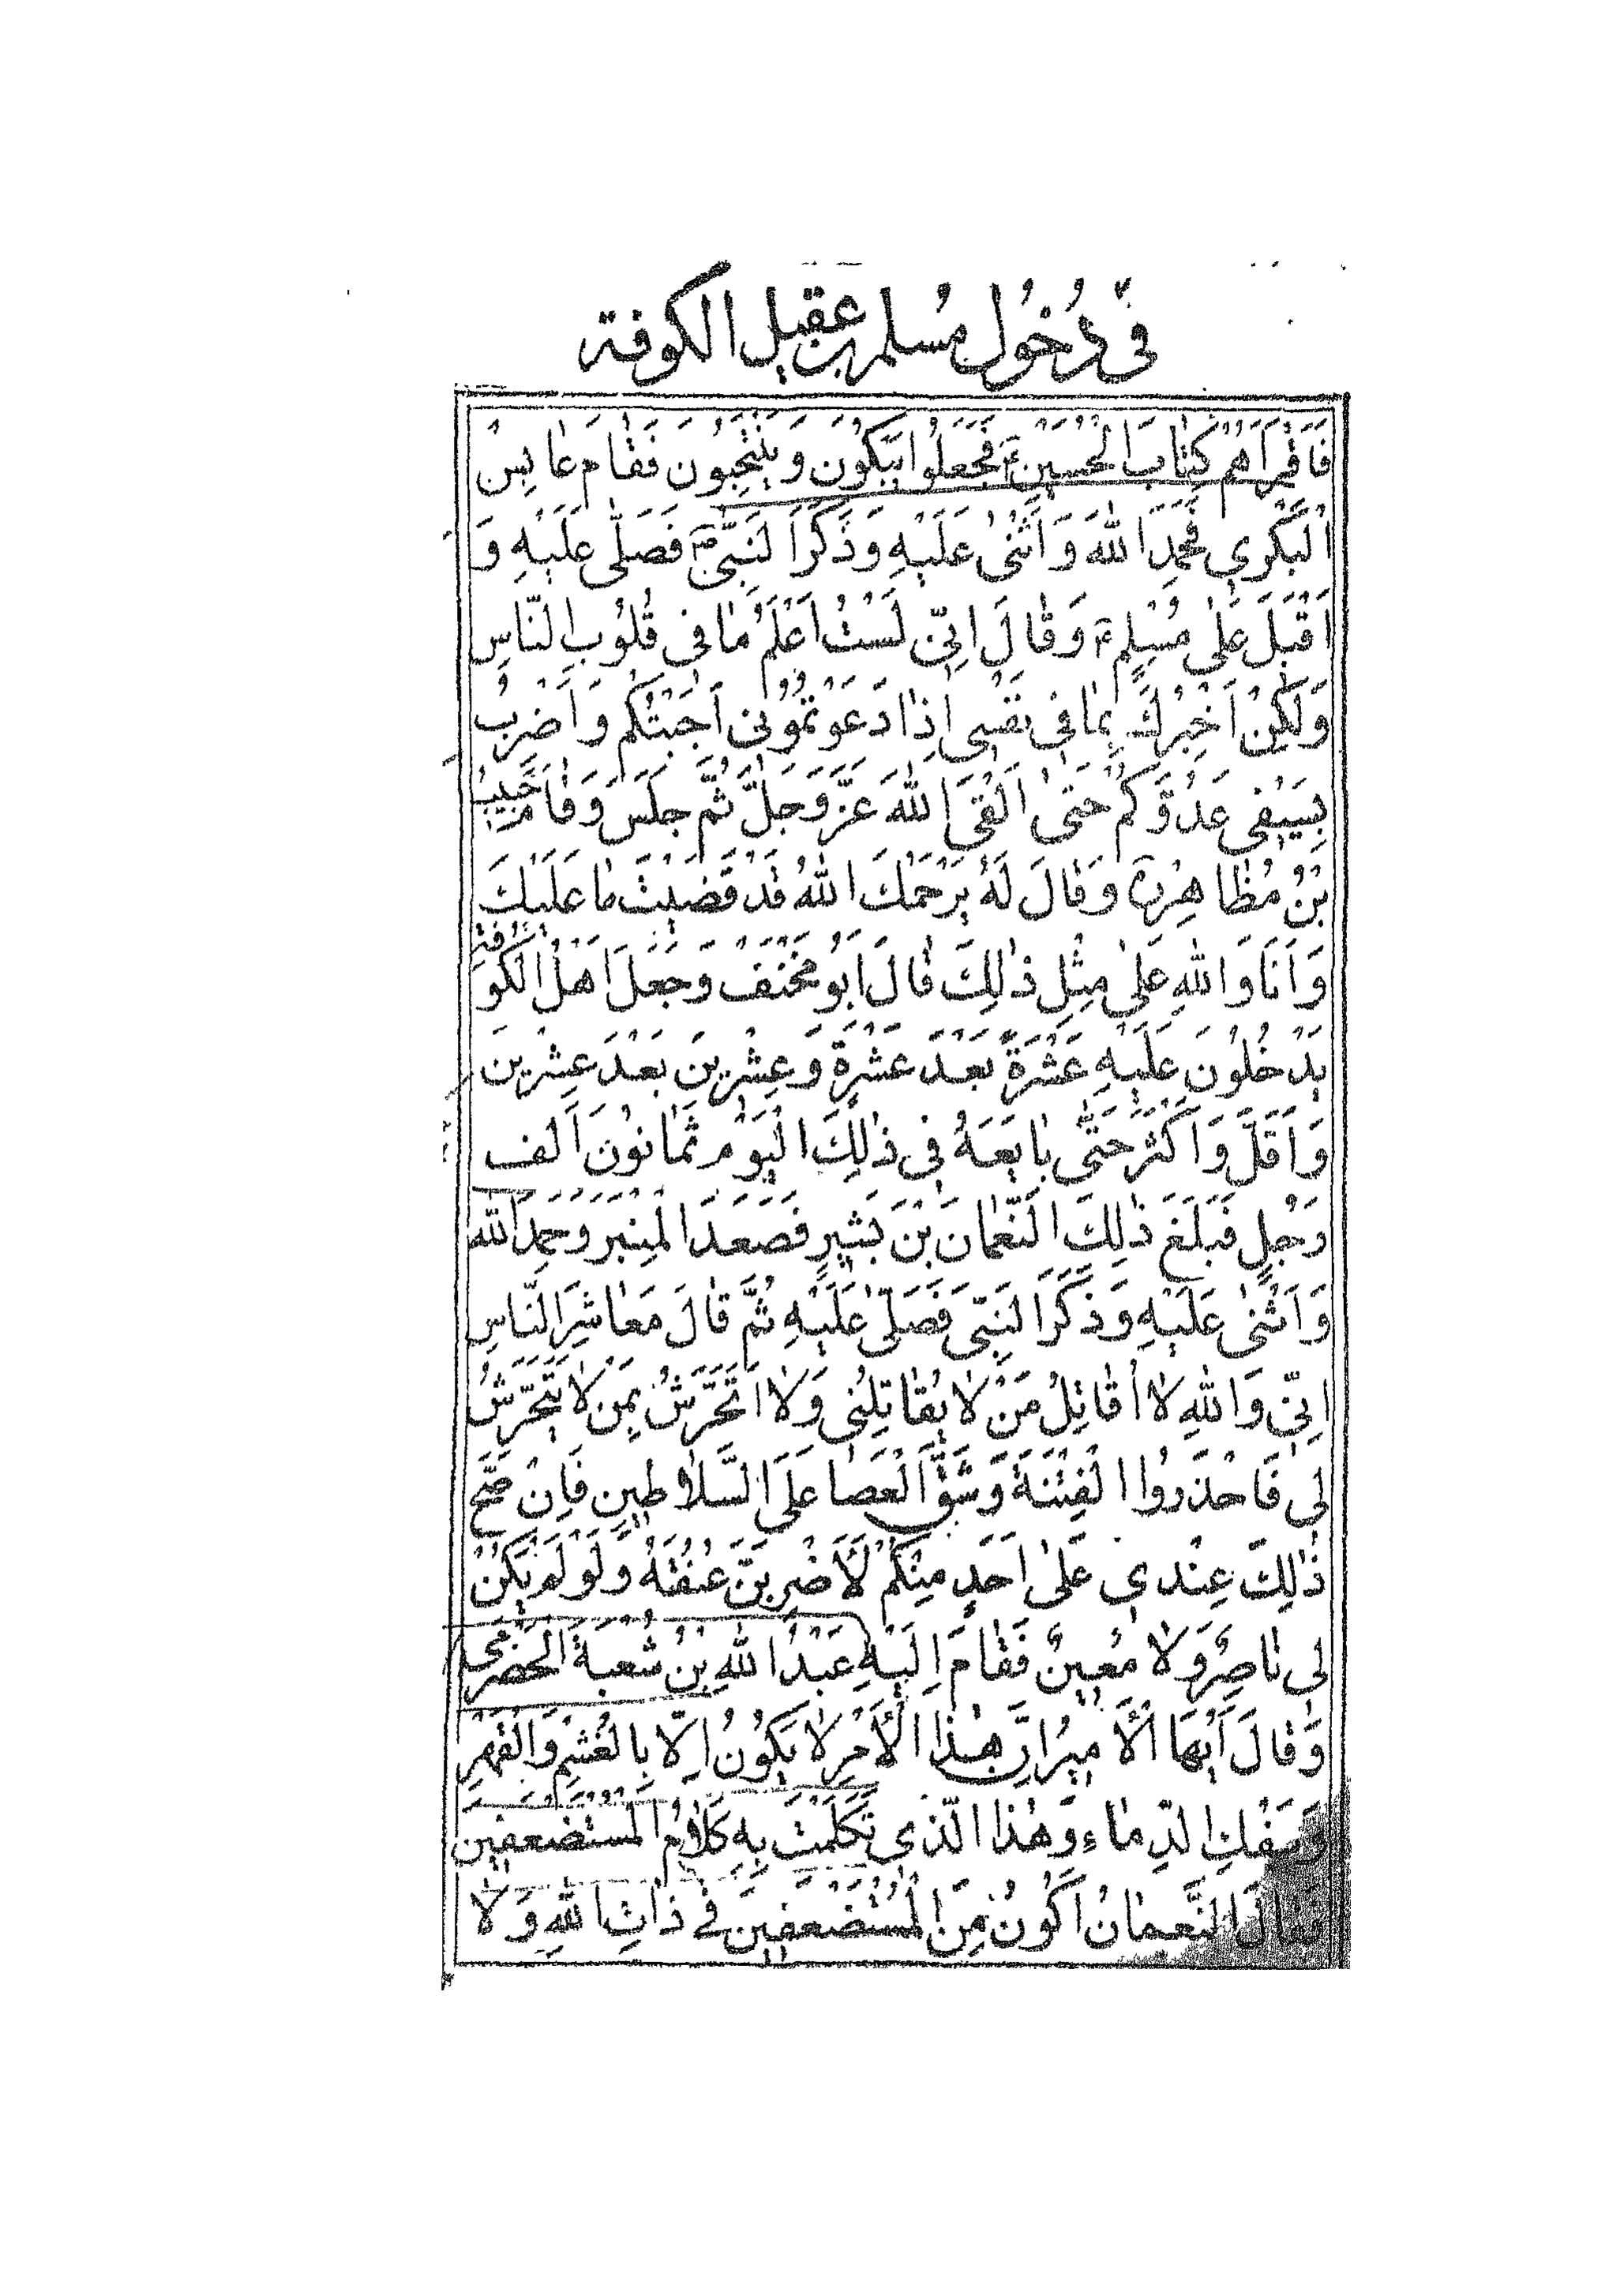 فی دُخُول مُسلم بن عقیل الکوفة
فَاَقْرَاَهُمْ كِتٰابَ الْحُسَیْنِ ؑ فَجَعَلُوا یَبْكُونَ وَ یَنْتَحِبُونَ فَقٰامَ عٰابِسُ
الْبَكْرِی فَحَمِدَ اللهَ وَ اَثْنٰی عَلَیْهِ وَ ذَكَرَ النَّبِیَّ ؐ فَصَلّٰی عَلَیْهِ وَ
اَقْبَلَ عَلٰی مُسْلِمٍ ؑ وَ قٰالَ اِنّی لَسْتُ اَعْلَمُ مٰا فی قُلُوبِ النّٰاسِ
وَلٰكِنْ اُخْبِرُكَ بِمٰا فی نَفْسی اِذٰا دَعَوْتُمُونی اَجَبْتُكُمْ وَ اَضْرِبُ
بِسَیْفی عَدُوَّكُمْ حَتّٰی اَلْقَی اللهَ عَزَّوَجَلَّ ثُمَّ جَلَسَ وَ قٰامَ حَبِیبُ
بْنُ مُظٰاهِرٍ وَ قٰالَ لَهُ یَرْحَمُكَ اللهُ قَدْ قَضَیْتَ مٰا عَلَیْكَ
وَ اَنَا وَ اللهِ عَلٰی مِثْلِ ذٰلِكَ قٰالَ اَبُو مِخْنَفْ وَ جَعَلَ اَهْلُ الْكُوفَةِ
یَدْخُلُونَ عَلَیْهِ عَشْرَةً بَعْدَ عَشْرَةٍ وَ عِشْرینَ بَعْدَ عِشْرینَ
وَ اَقَلَّ وَ اَكْثَرَ حَتّٰی بٰایَعَهُ فی ذٰلِكَ الْیَوْمِ ثَمٰانُونَ اَلْف
رَجُلٍ فَبَلَغَ ذٰلِكَ النُّعْمٰانَ بْنَ بَشیرٍ فَصَعَدَ الْمِنْبَر وَ حَمِدَ اللهَ
وَ اَثْنٰی عَلَیْهِ وَ ذَكَرَ النَّبِیَّ فَصَلّٰی عَلَیْهِ ثُمَّ قٰالَ مَعٰاشِرَ النّٰاسِ
اِنّی وَ اللهِ لٰا اُقٰاتِلُ مَنْ لٰا یُقٰاتِلُنی وَ لٰا اَتَحَرَّشُ بِمَنْ لٰا یَتَحَرَّشُ
لی فَاحْذَرُوا الْفِتْنَةَ وَ شَقَّ الْعَصٰا عَلَی السَّلٰاطینِ فَاِنْ صَحَّ
ذٰلِكَ عِنْدی عَلٰی اَحَدٍ مِنْكُمْ لَأَضْرِبَنَّ عُنُقَهُ وَ لَوْ لَمْ یَكُنْ
لی نٰاصِرٌ وَ لٰا مُعینٌ فَقٰامَ اِلَیْهِ عَبْدُ اللهِ بْنُ شُعْبَةَ الْحَضْرَمی
وَ قٰالَ اَیُّهَا الْأَمیرُ اِنَّ هٰذَا الْأَمْرَ لٰا یَكُونُ اِلّٰا بِالْغَشْمِ وَ الْقَهْرِ
وَ سَفْكِ الدِّمٰاءِ وَ هٰذَا الَّذی تَكَلَّمْتَ بِهِ كَلٰامُ الْمُسْتَضْعَفینَ
فَقٰالَ النُّعمٰانُ اَكُونُ مِنَ الْمُسْتَضْعَفینَ فی ذٰاتِ اللهِ وَ لٰا